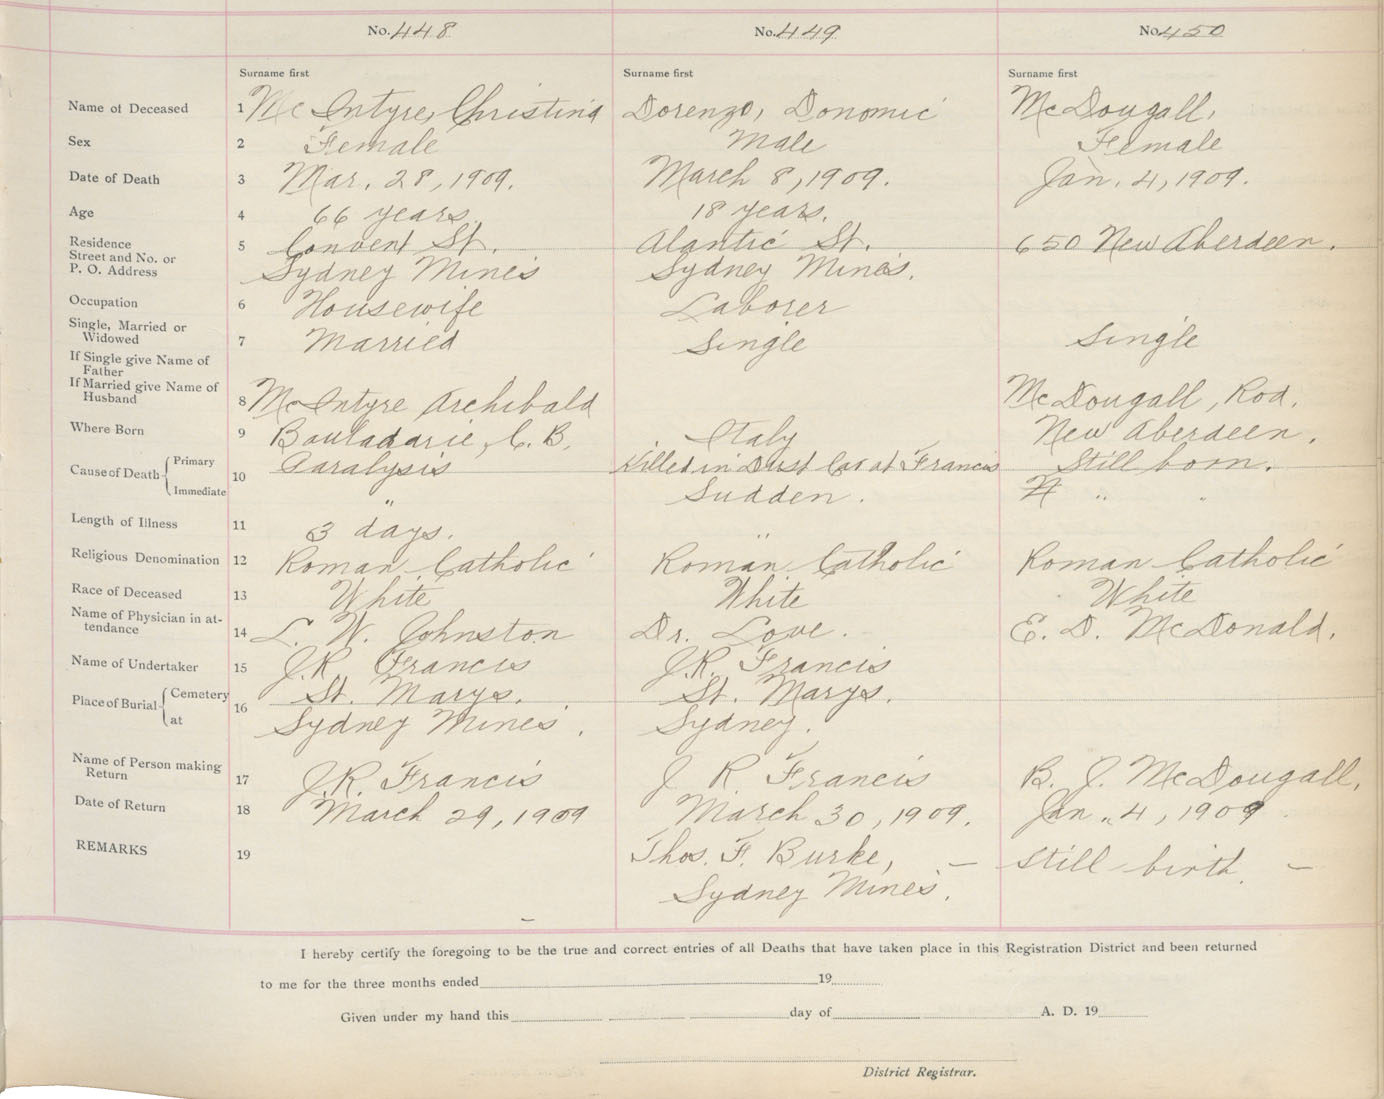 No. 448 No. 449 No. 450
Surname first Surname first Surname first
Name of Deceased 1 McIntyre, Christina Dorenzo, Donomic McDougall,
Sex 2 Female Male Female
Date of Death 3 Mar. 28, 1909. March 8, 1909. Jan. 4, 1909.
Age 4 66 years. 18 years.
Residence 5 Convent St. Alantic St. 650 New Aberdeen.
Street and No. or
P. O. Address Sydney Mines Sydney Mines.
Occupation 6 Housewife Laborer
Single, Married or
Widowed 7 Married Single Single
If Single give Name of
Father
If Married give Name of
Husband 8 McIntyre Archibald McDougall, Rod.
Where Born 9 Bouladarie, C. B. Italy New Aberdeen.
Cause of Death Primary 10 Paralysis Killed in Dust Car at Francis Still born.
Immediate " Sudden. " "
Length of Illness 11 3 days. "
Religious Denomination 12 Roman Catholic Roman Catholic Roman Catholic
Race of Deceased 13 White White White
Name of Physician in at-
tendance 14 L. W. Johnston Dr. Love. E. D. McDonald.
Name of Undertaker 15 J.R. Francis J.R. Francis
Place of Burial Cemetery 16 St. Marys. St. Marys.
at Sydney Mines. Sydney.
Name of Person making
Return 17 J.R. Francis J R Francis B. J. McDougall.
Date of Return 18 March 29, 1909 March 30, 1909. Jan. 4, 1909
REMARKS 19 Thos. F. Burke, — Still birth. —
Sydney Mines.
I hereby certify the foregoing to be the true and correct entries of all Deaths that have taken place in this Registration District and been returned
to me for the three months ended 19
Given under my hand this day of A. D. 19
District Registrar.